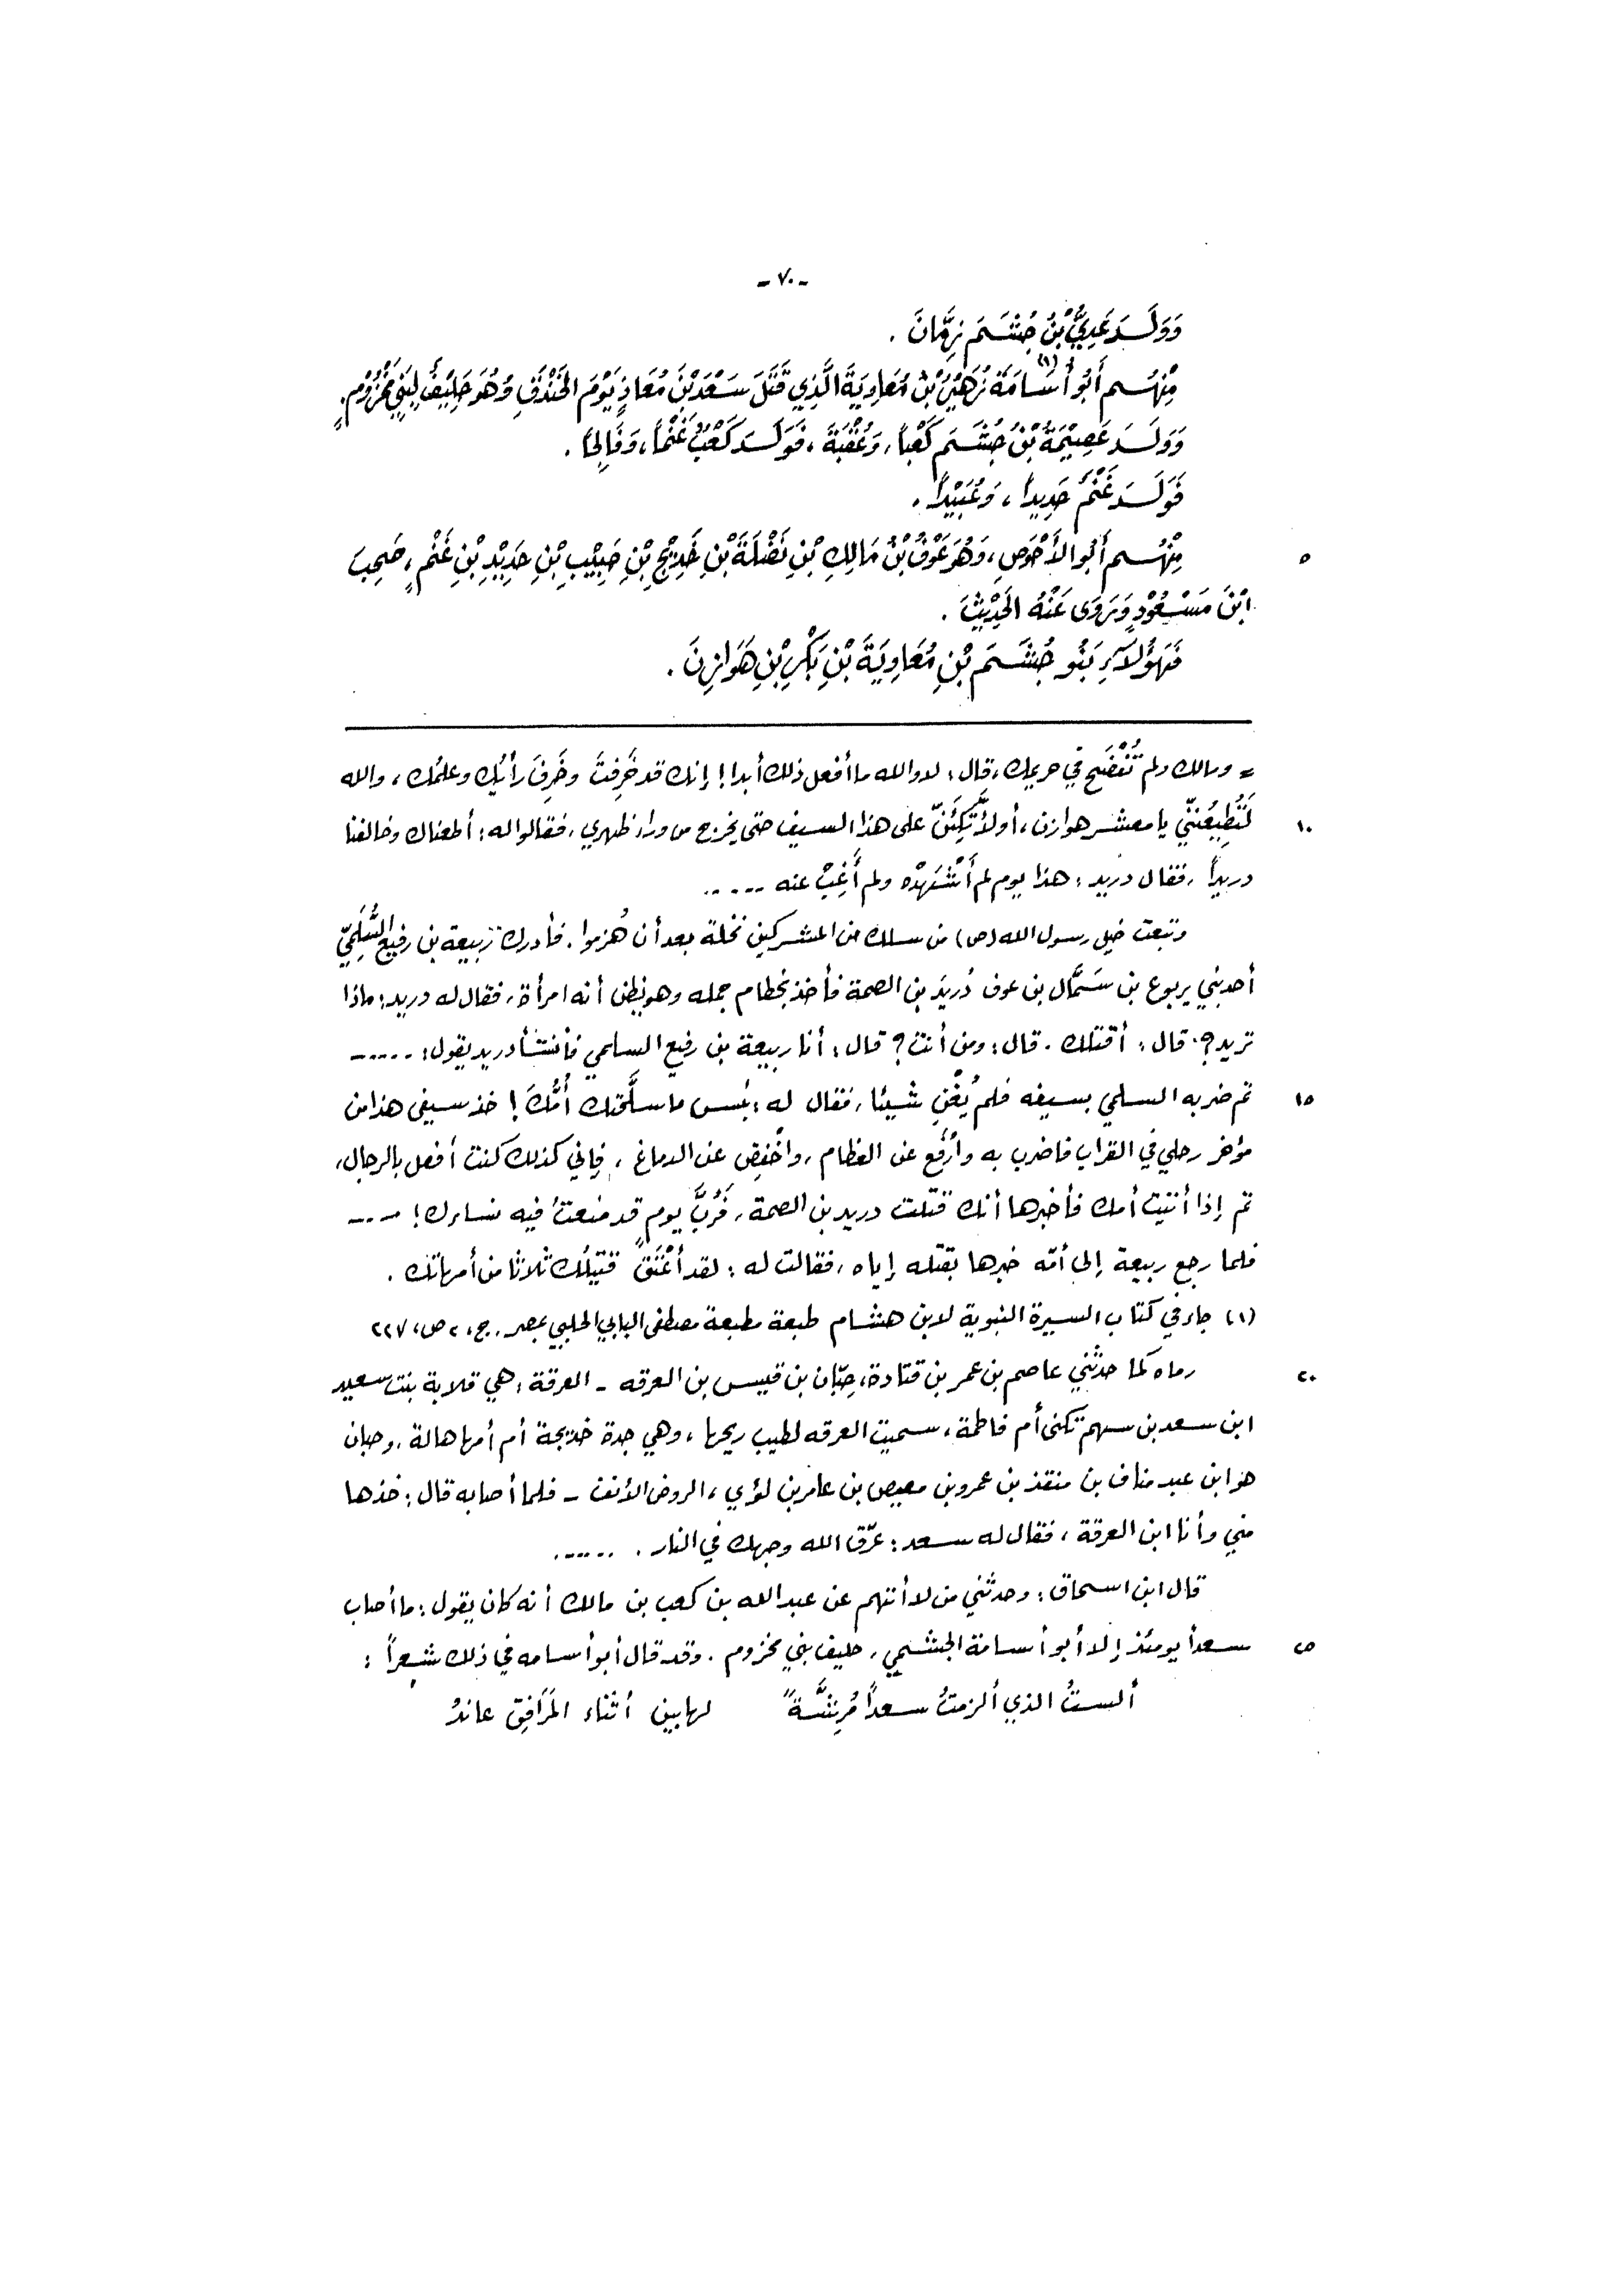 - ٧٠ -
وَوَلَدَ عَدِيُّ بْنُ جُشَمَ زِمَّانَ .
مِنْهُم أَبُو أُسَامَةَ(١) زُهَيْرُ بْنُ مُعَاوِيَةَ الَّذِي قَتَلَ سَعْدَ بْنَ مُعَاذٍ يَوْمَ الخَنْدَقِ وَهُوَ حَلِيْفٌ لِبَنِي مَخْزُوْمٍ .
وَوَلَدَ عَصِيْمَةُ بْنُ جُشَمَ كَعْبَاً ، وَعُقْبَةَ ، فَوَلَدَ كَعْبٌ غَنْمَاً ، وَفَالِجَاً .
فَوَلَدَ غَنْمٌ حَدِيدَاً ، وَعُبَيْدَاً .
٥ مِنْهُم أَبُو الأَحْوَصِ ، وَهُوَ عَوْفُ بْنُ مَالِكِ بْنِ نَضْلَةَ بْنِ خَدِيْجِ بْنِ حَبِيْبِ بْنِ حَدِيْدِ بْنِ غَنْمٍ ، صَحِبَ
ابْنَ مَسْعُوْدٍ وَرَوَى عَنْهُ الحَدِيْثَ .
فَهَؤُلاَءِ بَنُو جُشَمَ بْنِ مُعَاوِيَةَ بْنِ بَكْرِ بْنِ هَوَازِنَ .
= ومالك ولم تُفْضَح في حريمك ، قال : لا والله ما أفعل ذلك أبدا ! إنك قد خَرِفتَ وخَرِفَ رأيُك وعلمُك ، والله
١٠ لَتُطِيعُنَّنِي يا معشر هوازن ، أو لأتَّكِئَنّ على هذا السيف حتى يخرج من وراء ظهري ، فقالوا له : أطعناك وخالفنا
دريداً ، فقال دُريد : هذا يوم لم أَشْهَدْه ولم أَغِبْ عنه .....
وتبعت خيل رسول الله (ص) من سلك من المشركين نخلة بعد أن هُزموا . فأدرك ربيعة بن رفيع السُّلَمِيّ
أحد بني يربوع بن سَمَّال بن عوف دُريدَ بن الصمة فأخذ بخطام جمله وهو يظن أنه امرأة ، فقال له دريد : ماذا
تريد ؟ قال : أقتلك . قال : ومن أنت ؟ قال : أنا ربيعة بن رفيع السلمي فأنشأ دريد يقول : .....
١٥ ثم ضربه السلمي بسيفه فلم يُغْنِ شيئا ، فقال له : بئس ما سلَّحتك أُمُّكَ ! خذ سيفي هذا من
مؤخر رحلي في القراب فاضرب به وارْفَع عن العظام ، واخْفِض عن الدماغ ، فإني كذلك كنت أفعل بالرجال ،
ثم إذا أتيت أمك فأخبرها أنك قتلت دريد بن الصمة ، فَرُبَّ يومٍ قد منعتُ فيه نساءك ! .....
فلما رجع ربيعة إلى أمّه خبرها بقتله إياه ، فقالت له : لقد أَعْتَقَ قتيلُك ثلاثا من أمهاتك .
(١) جاء في كتاب السيرة النبوية لابن هشام طبعة مطبعة مصطفى البابي الحلبي بمصر . ج ، ٢ ص ، ٢٢٧
٢٠ رماه كما حدثني عاصم بن عمر بن قتادة ، حِبّان بن قيس بن العرقه - العرقة ، هي قلابة بنت سعيد
ابن سعد بن سهم تكنى أم فاطمة ، سميت العرقه لطيب ريحها ، وهي جدة خديجة أم أمها هالة ، وحبان
هو ابن عبد مناف بن منقذ بن عمرو بن معيص بن عامر بن لؤي ، الروض الأنف - فلما أصابه قال : خذها
مني وأنا ابن العرقة ، فقال له سعد : عرّق الله وجهك في النار . .....
قال ابن اسحاق : وحدثني من لا أتهم عن عبد الله بن كعب بن مالك أنه كان يقول : ما أصاب
٢٥ سعداً يومئذ إلا أبو أسامة الجشمي ، حليف بني مخزوم . وقد قال أبو أسامه في ذلك شعراً :
ألستُ الذي ألزمتُ سعداً مُرِشَّةً لها بين أثناء المَرَافِقِ عاندُ